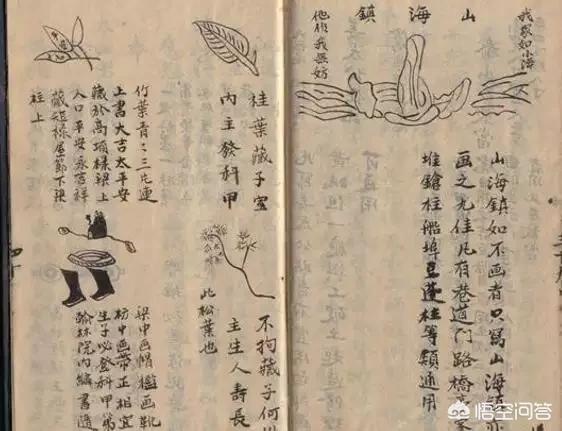 山海鎮
我家如山海
他作我無妨
山海鎮如不画者只寫山海鎮亦
画之尤佳凡有巷道門路橋
堆鎗柱船埠豆蓬柱等類通用
桂葉藏于
內主發科甲
竹葉青〻三片連
上書大吉太平安
藏於高頂樑上
人口平安永吉祥
藏短樑尾節下梁
柱上
不拘藏于何
主生人壽長
此松葉也
梁中画帽檻画靴
枋中画帶正相宜
生子必登科甲
翰林院內編書
悟空问答